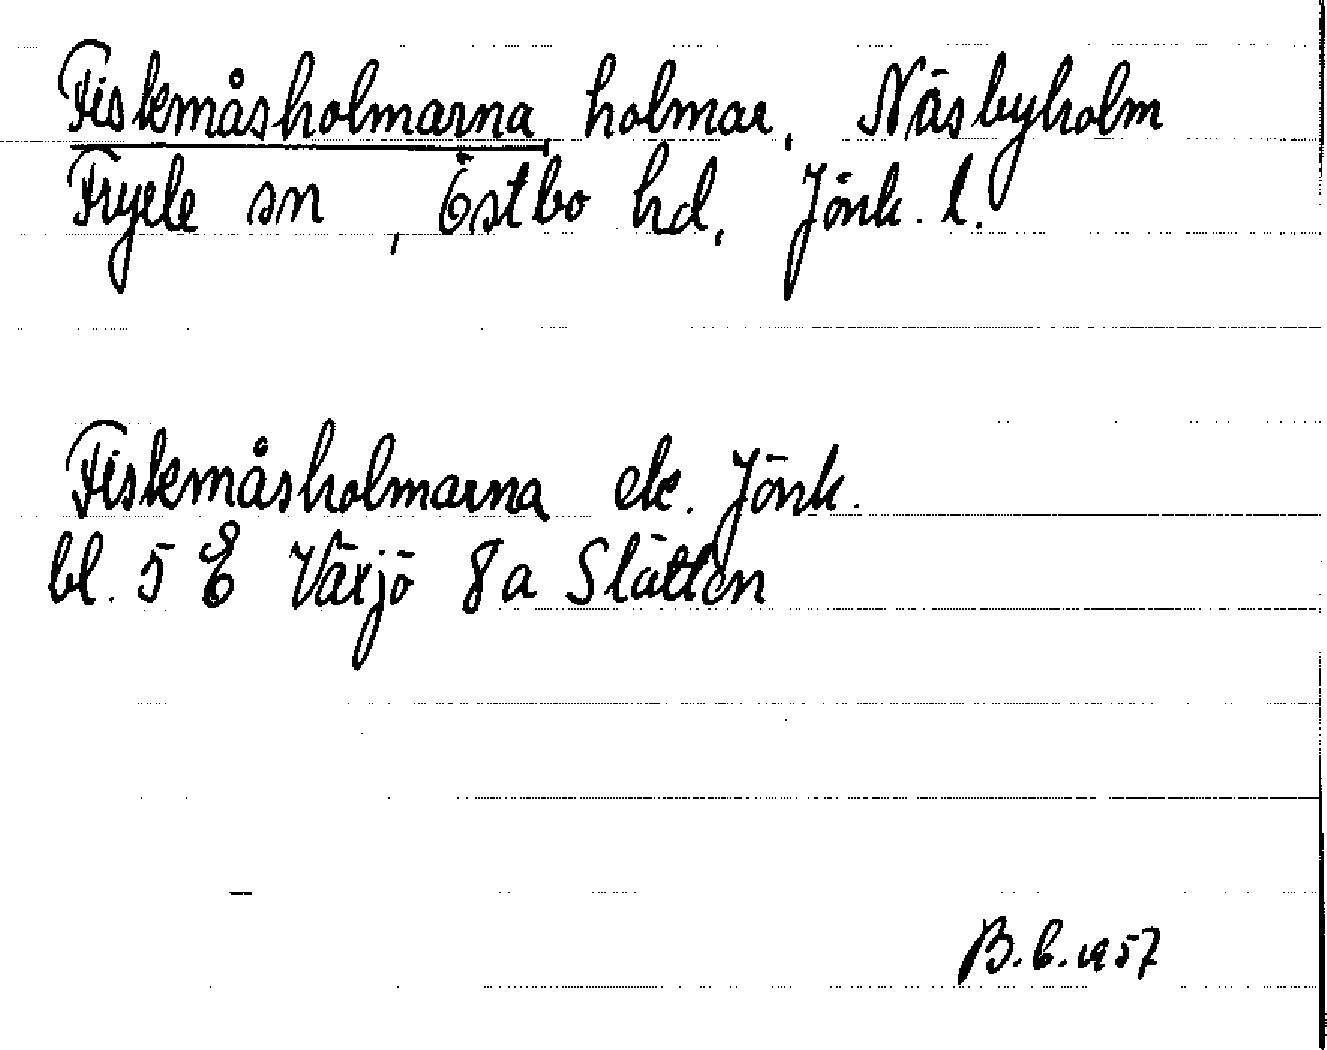 Fiskemåsholmarna, holmar, Näsbyholm
Fryele sn, Östbo hd, Jönk. l.
Fiskemåsholmarna ek. Jönk.
bl. 5 E Växjö 8a Slätten
B.b. 1957